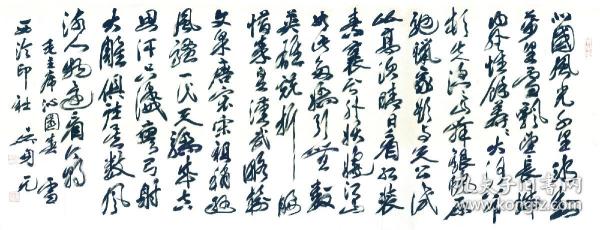 北國風光千里冰封
萬里雪飄望長城
內外惟餘莽莽大河上下
頓失滔滔山舞銀蛇原
馳蠟象欲與天公試
比高須晴日看紅裝
素裹分外妖嬈江山
如此多嬌引無數
英雄競折腰
惜秦皇漢武略輸
文采唐宗宋祖稍遜
風騷一代天驕成吉
思汗只識彎弓射
大雕俱往矣數風
流人物還看今朝
毛主席沁園春 雪
西泠印社
孔夫子旧书网